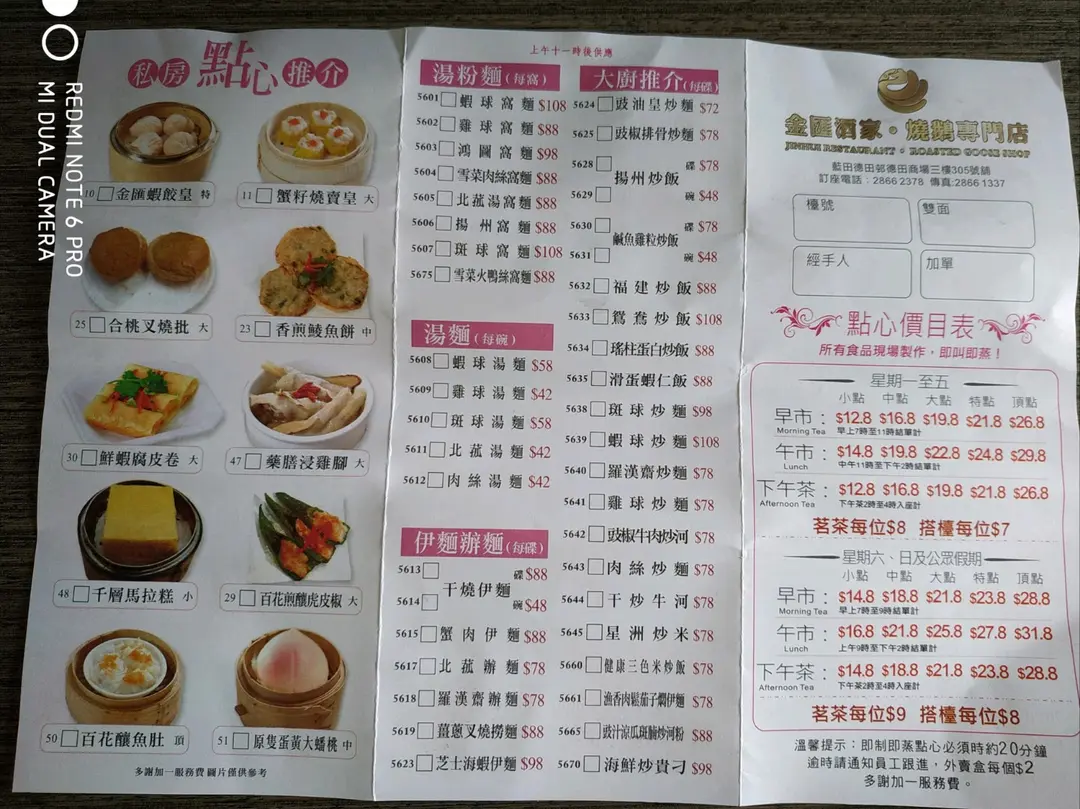 REDMI NOTE 6 PRO
MI DUAL CAMERA
私房點心推介
10 金匯蝦餃皇 特
11 蟹籽燒賣皇 大
25 合桃叉燒批 大
23 香煎鯪魚餅 中
30 鮮蝦腐皮卷 大
47 藥膳浸雞腳 大
48 千層馬拉糕 小
29 百花煎釀虎皮椒 大
50 百花釀魚肚 頂
51 原隻蛋黃大蟠桃 中
多謝加一服務費 圖片僅供參考
上午十一時後供應
湯粉麵(每窩)
5601 蝦球窩麵 $108
5602 雞球窩麵 $88
5603 鴻圖窩麵 $98
5604 雪菜肉絲窩麵 $88
5605 北菰湯窩麵 $88
5606 揚州窩麵 $88
5607 斑球窩麵 $108
5675 雪菜火鴨絲窩麵 $88
湯麵(每碗)
5608 蝦球湯麵 $58
5609 雞球湯麵 $42
5610 斑球湯麵 $58
5611 北菰湯麵 $42
5612 肉絲湯麵 $42
伊麵辦麵(每碟)
5613 碟 $88
干燒伊麵
5614 碗 $48
5615 蟹肉伊麵 $88
5617 北菰辦麵 $78
5618 羅漢齋辦麵 $78
5619 薑蔥叉燒撈麵 $88
5623 芝士海蝦伊麵 $98
大廚推介(每碟)
5624 豉油皇炒麵 $72
5625 豉椒排骨炒麵 $78
5628 碟 $78
揚州炒飯
5629 碗 $48
5630 碟 $78
鹹魚雞粒炒飯
5631 碗 $48
5632 福建炒飯 $88
5633 鴛鴦炒飯 $108
5634 瑤柱蛋白炒飯 $88
5635 滑蛋蝦仁飯 $88
5638 斑球炒麵 $98
5639 蝦球炒麵 $108
5640 羅漢齋炒麵 $78
5641 雞球炒麵 $78
5642 豉椒牛肉炒河 $78
5643 肉絲炒麵 $78
5644 干炒牛河 $78
5645 星洲炒米 $78
5660 健康三色米炒飯 $78
5661 漁香肉鬆茄子燜伊麵 $78
5665 豉汁涼瓜斑腩炒河粉 $88
5670 海鮮炒貴刁 $98
金匯酒家。燒鵝專門店
JINHUI RESTAURANT • ROASTED GOOSE SHOP
藍田德田邨德田商場三樓305號舖
訂座電話:2866 2378 傳真:2866 1337
檯號 雙面
經手人 加單
點心價目表
所有食品現場製作,即叫即蒸!
星期一至五
小點 中點 大點 特點 頂點
早市: $12.8 $16.8 $19.8 $21.8 $26.8
Morning Tea 早上7時至11時結單計
午市: $14.8 $19.8 $22.8 $24.8 $29.8
Lunch 中午11時至下午2時結單計
下午茶: $12.8 $16.8 $19.8 $21.8 $26.8
Afternoon Tea 下午茶2時至4時入座計
茗茶每位$8 搭檯每位$7
星期六、日及公眾假期
小點 中點 大點 特點 頂點
早市: $14.8 $18.8 $21.8 $23.8 $28.8
Morning Tea 早上7時至9時結單計
午市: $16.8 $21.8 $25.8 $27.8 $31.8
Lunch 上午9時至下午2時結單計
下午茶: $14.8 $18.8 $21.8 $23.8 $28.8
Afternoon Tea 下午茶2時至4時入座計
茗茶每位$9 搭檯每位$8
溫馨提示:即制即蒸點心必須時約20分鐘
逾時請通知員工跟進,外賣盒每個$2
多謝加一服務費。